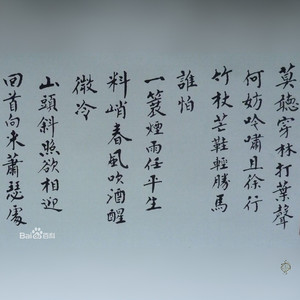 莫聽穿林打葉聲
何妨吟嘯且徐行
竹杖芒鞋輕勝馬
誰怕
一蓑煙雨任平生
料峭春風吹酒醒
微冷
山頭斜照欲相迎
回首向來蕭瑟處
Bai百科